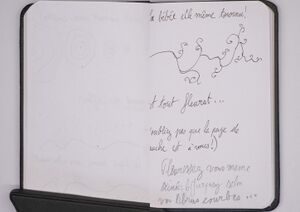 la bébée elle même tournoie!
t tout fleurit...
oubliez pas que la page de
gauche et à vous!)
Fleurissez vous même
bifurquez selon
vos libres courbes...